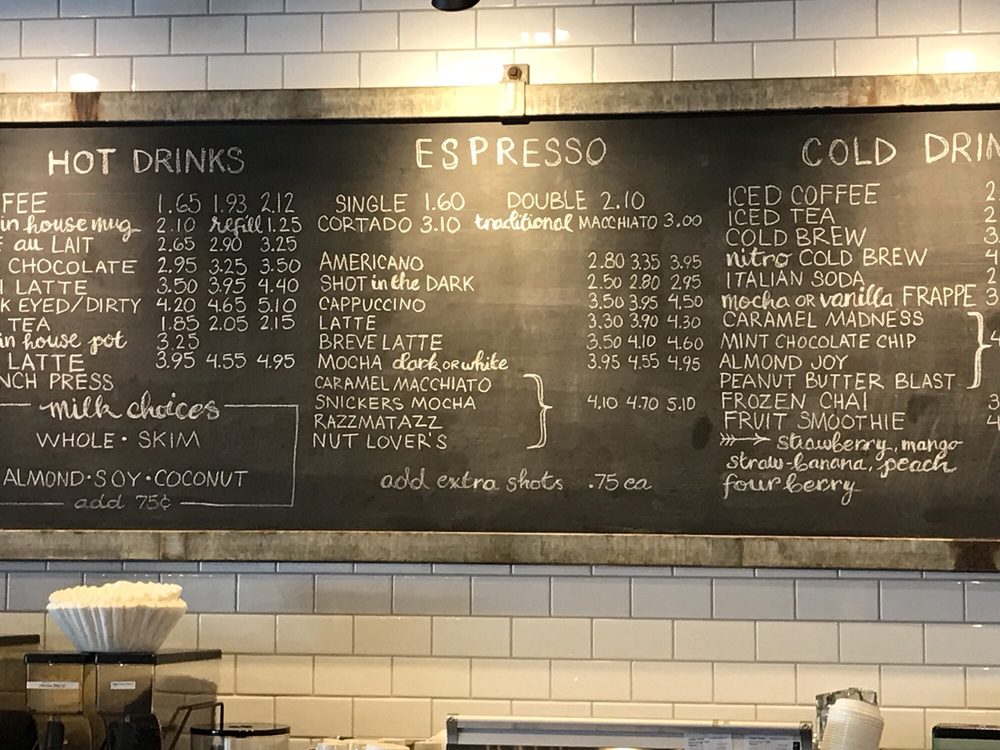 HOT DRINKS
FEE 1.65 1.93 2.12
in house mug 2.10 refill 1.25
au LAIT 2.65 2.90 3.25
CHOCOLATE 2.95 3.25 3.50
I LATTE 3.50 3.95 4.40
K EYED/DIRTY 4.20 4.65 5.10
TEA 1.85 2.05 2.15
in house pot 3.25
LATTE 3.95 4.55 4.95
NCH PRESS
milk choices
WHOLE • SKIM
ALMOND • SOY • COCONUT
add 75¢
ESPRESSO
SINGLE 1.60 DOUBLE 2.10
CORTADO 3.10 traditional MACCHIATO 3.00
AMERICANO 2.80 3.35 3.95
SHOT in the DARK 2.50 2.80 2.95
CAPPUCCINO 3.50 3.95 4.50
LATTE 3.30 3.90 4.30
BREVE LATTE 3.50 4.10 4.60
MOCHA dark or white 3.95 4.55 4.95
CARAMEL MACCHIATO
SNICKERS MOCHA 4.10 4.70 5.10
RAZZMATAZZ
NUT LOVER'S
add extra shots .75 ea
COLD DRIN
ICED COFFEE 2
ICED TEA 2
COLD BREW 3
nitro COLD BREW 4
ITALIAN SODA 2
mocha OR vanilla FRAPPE 3
CARAMEL MADNESS
MINT CHOCOLATE CHIP 4
ALMOND JOY
PEANUT BUTTER BLAST
FROZEN CHAI 3
FRUIT SMOOTHIE 4
strawberry, mango
straw-banana, peach
four berry